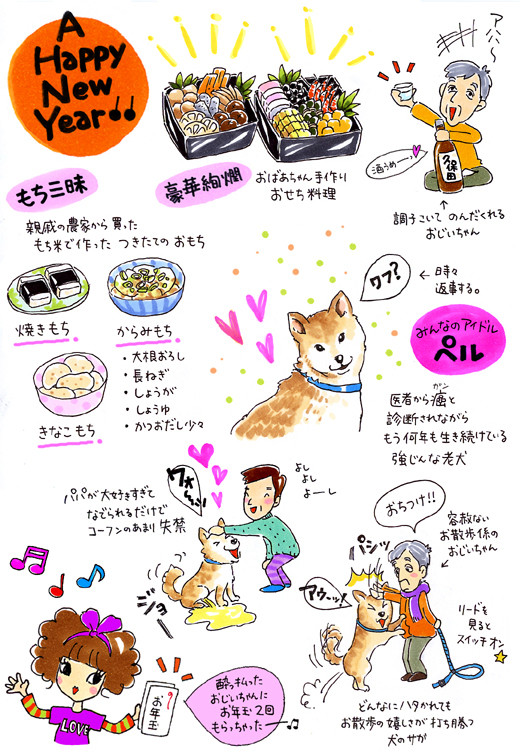 A
Happy
New
Year!!
アハハ〜
酒うめー
久保田
調子こいて のんだくれる
おじいちゃん
もち三昧
豪華絢爛
おばあちゃん手作り
おせち料理
親戚の農家から買った
もち米で作った つきたての おもち
焼きもち
からみもち
・大根おろし
・長ねぎ
・しょうが
・しょうゆ
・かつおだし少々
きなこもち
ワフ?
← 時々
返事する。
みんなのアイドル
ペル
医者から癌と
ガン
診断されながら
もう何年も生き続けている
強じんな老犬
パパが大好きすぎて
なでられるだけで
コーフンのあまり 失禁
よし
よし
よーし
ジョー
おちつけ!!
容赦ない
お散歩係の
おじいちゃん
パシッ
アウ〜ッ!
リードを
見ると
スイッチオン
どんなにハタかれても
お散歩の嬉しさが打ち勝つ
犬のサガ
LOVE
お年玉
酔っぱらった
おじいちゃんに
お年玉2回
もらっちゃった